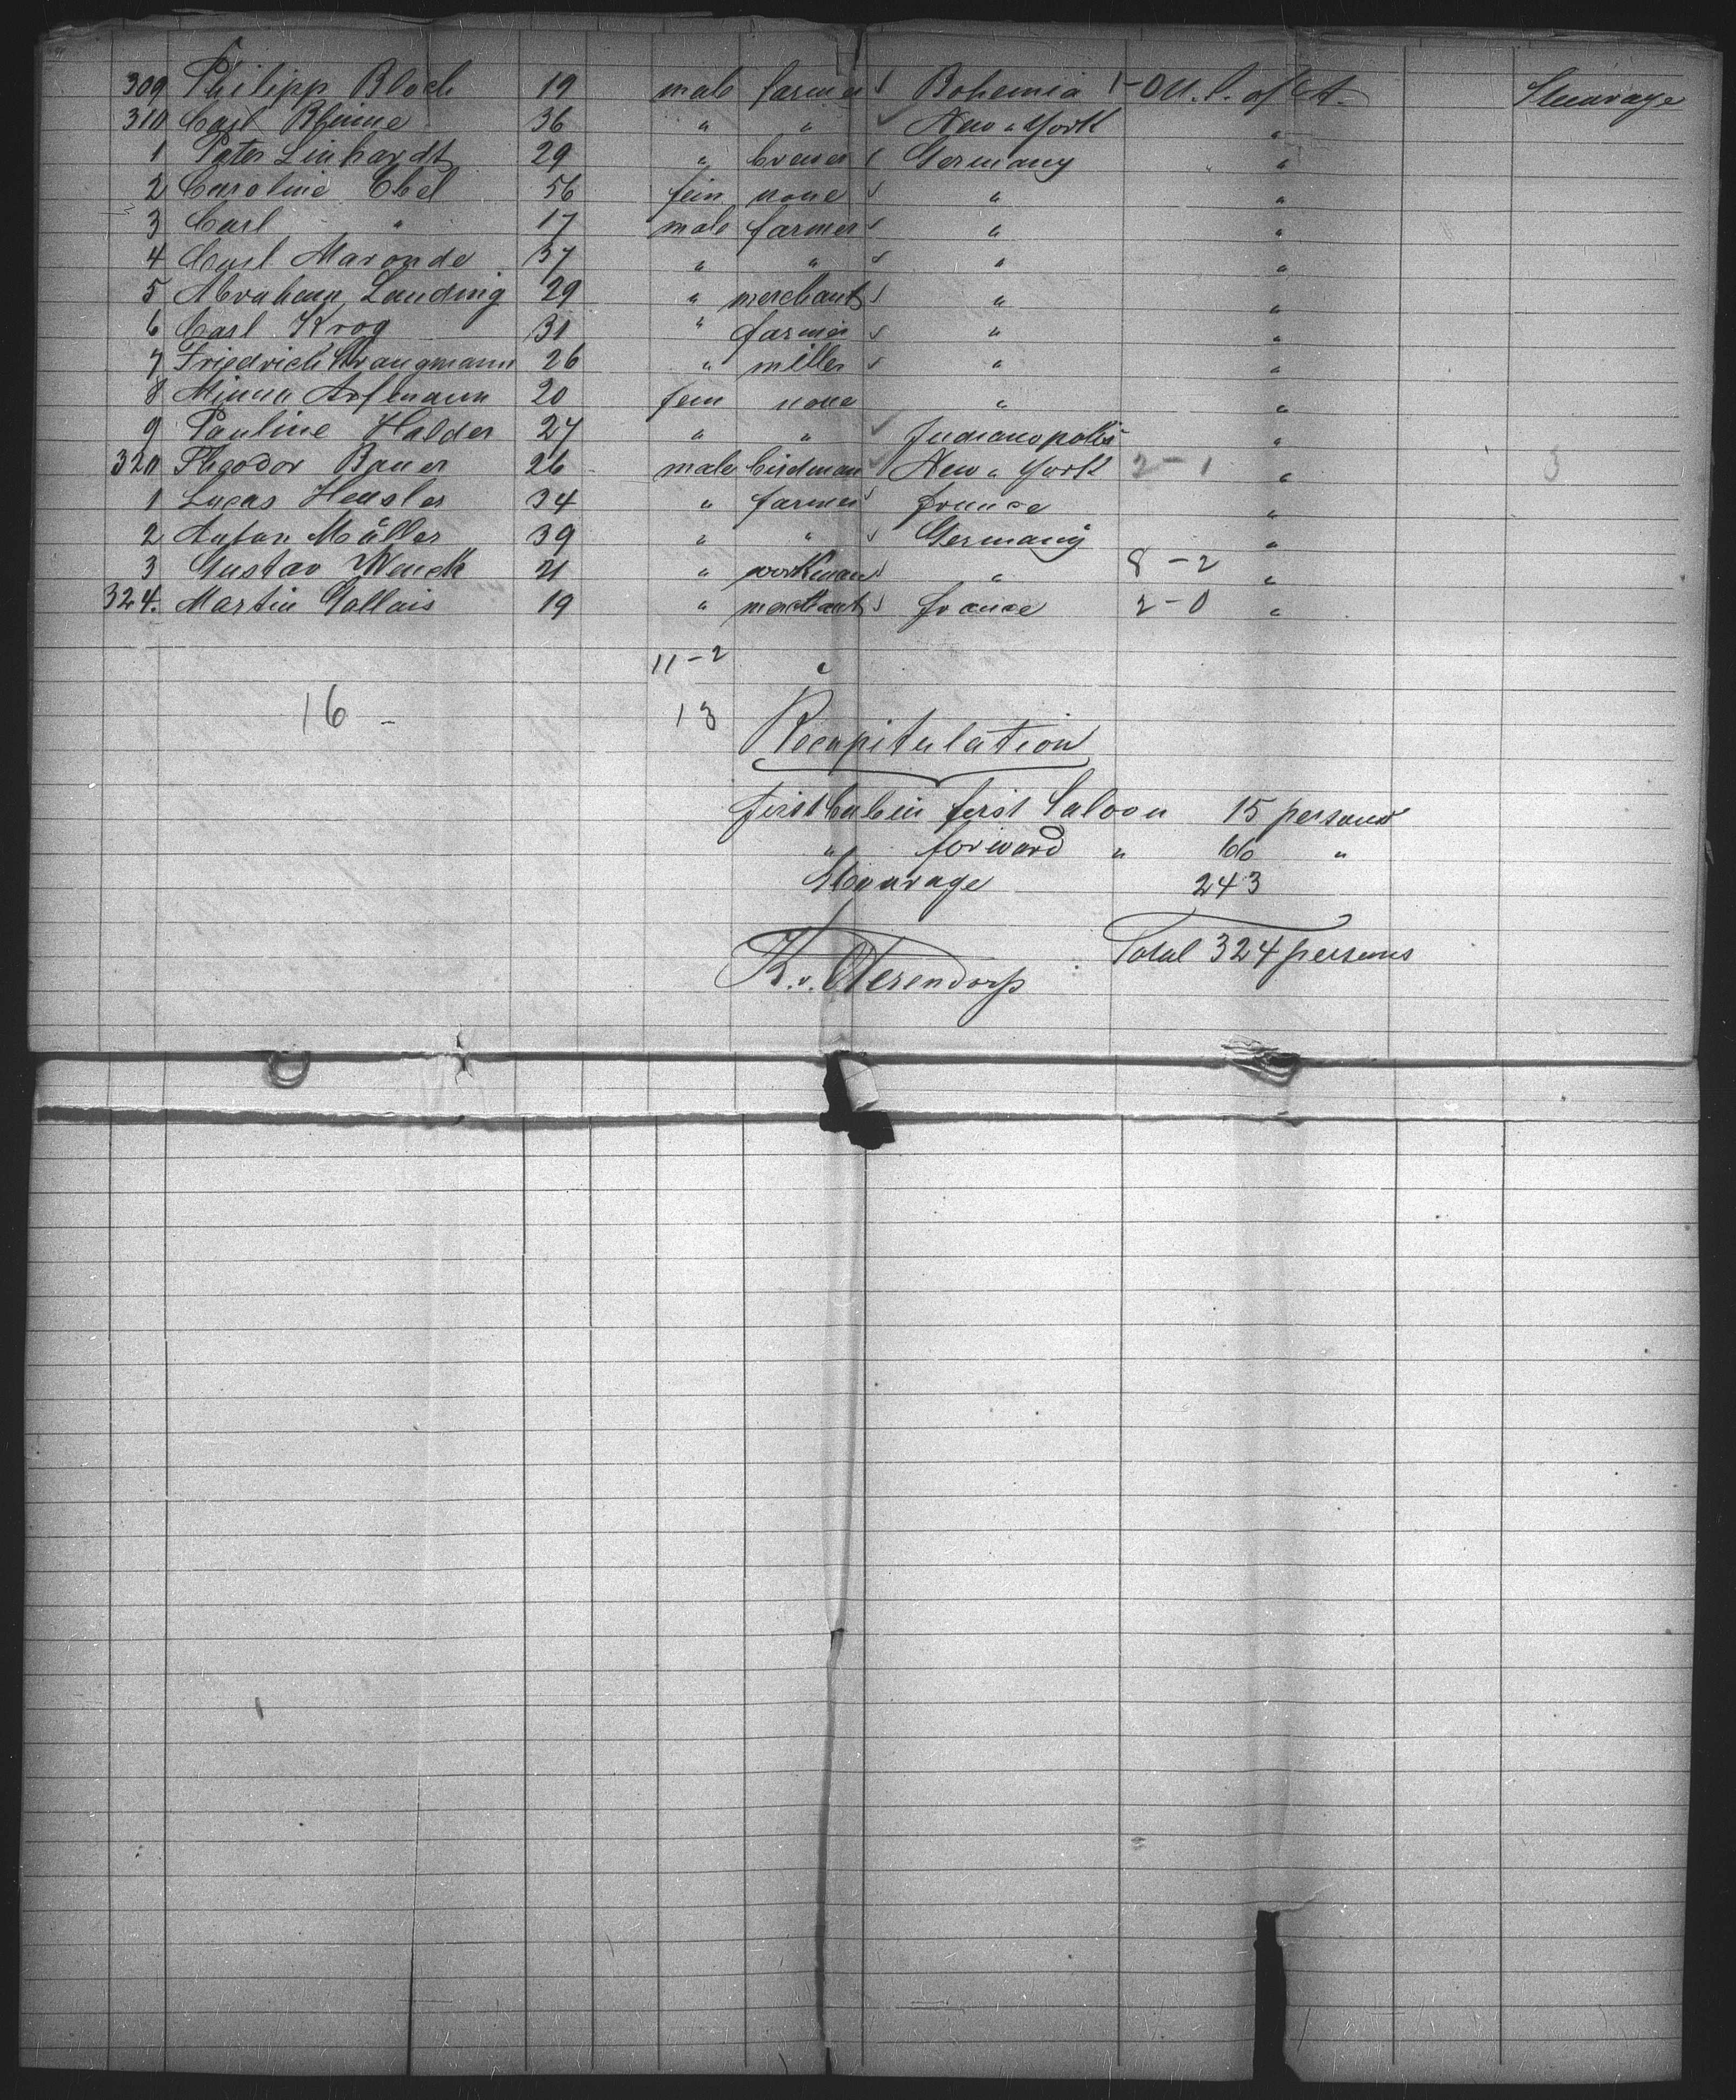 309 Philipp Bloch 19 male farmer √ Bohemia 1-0 U. S. of A. Steerage
310 Carl 36 " " ✓ New " York "
1 Peter Linhardt 29 " brewer √ Germany "
2 Caroline Ebel 56 fem none √ " "
3 Carl " 17 male farmer √ " "
4 Carl Maronde 37 " " √ " "
5 Abraham Landing 29 " merchant √ " "
6 Carl Krog 31 " farmer √ " "
7 Friedrich 26 " miller √ " "
8 Minna 20 fem none " "
9 Pauline Halder 27 " " ✓ Indianapolis "
320 Theodor Bauer 26 male ✓ New " York 2-1 " 3
1 Lucas Hensler 34 " farmer √ france "
2 Anton Müller 39 " " √ Germany "
3 Gustav Wenck 21 " workman √ " 8-2 "
324. Martin Gallais 19 " merchant √ france 2-0 "
11-2 "
16 - 13
Recapitulation
first Cabin first Saloon 15 persons
" forward " 66 "
Steerage 243
Total 324 persons